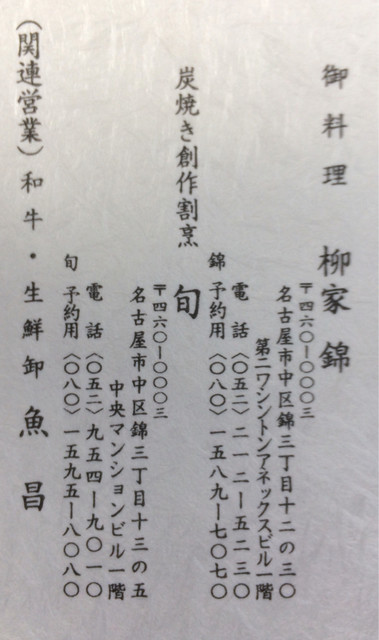 御料理 柳家 錦
〒四六〇―〇〇〇三
名古屋市中区錦三丁目十二の三〇
第二ワシントンアネックスビル一階
電話〈〇五二〉二一二―五二三〇
錦 予約用〈〇八〇〉一五八九―七〇七〇
炭焼き創作割烹 旬
〒四六〇―〇〇〇三
名古屋市中区錦三丁目十三の五
中央マンションビル一階
電話〈〇五二〉九五四―九〇一〇
旬 予約用〈〇八〇〉一五九五―八〇八〇
(関連営業)和牛・生鮮卸 魚昌